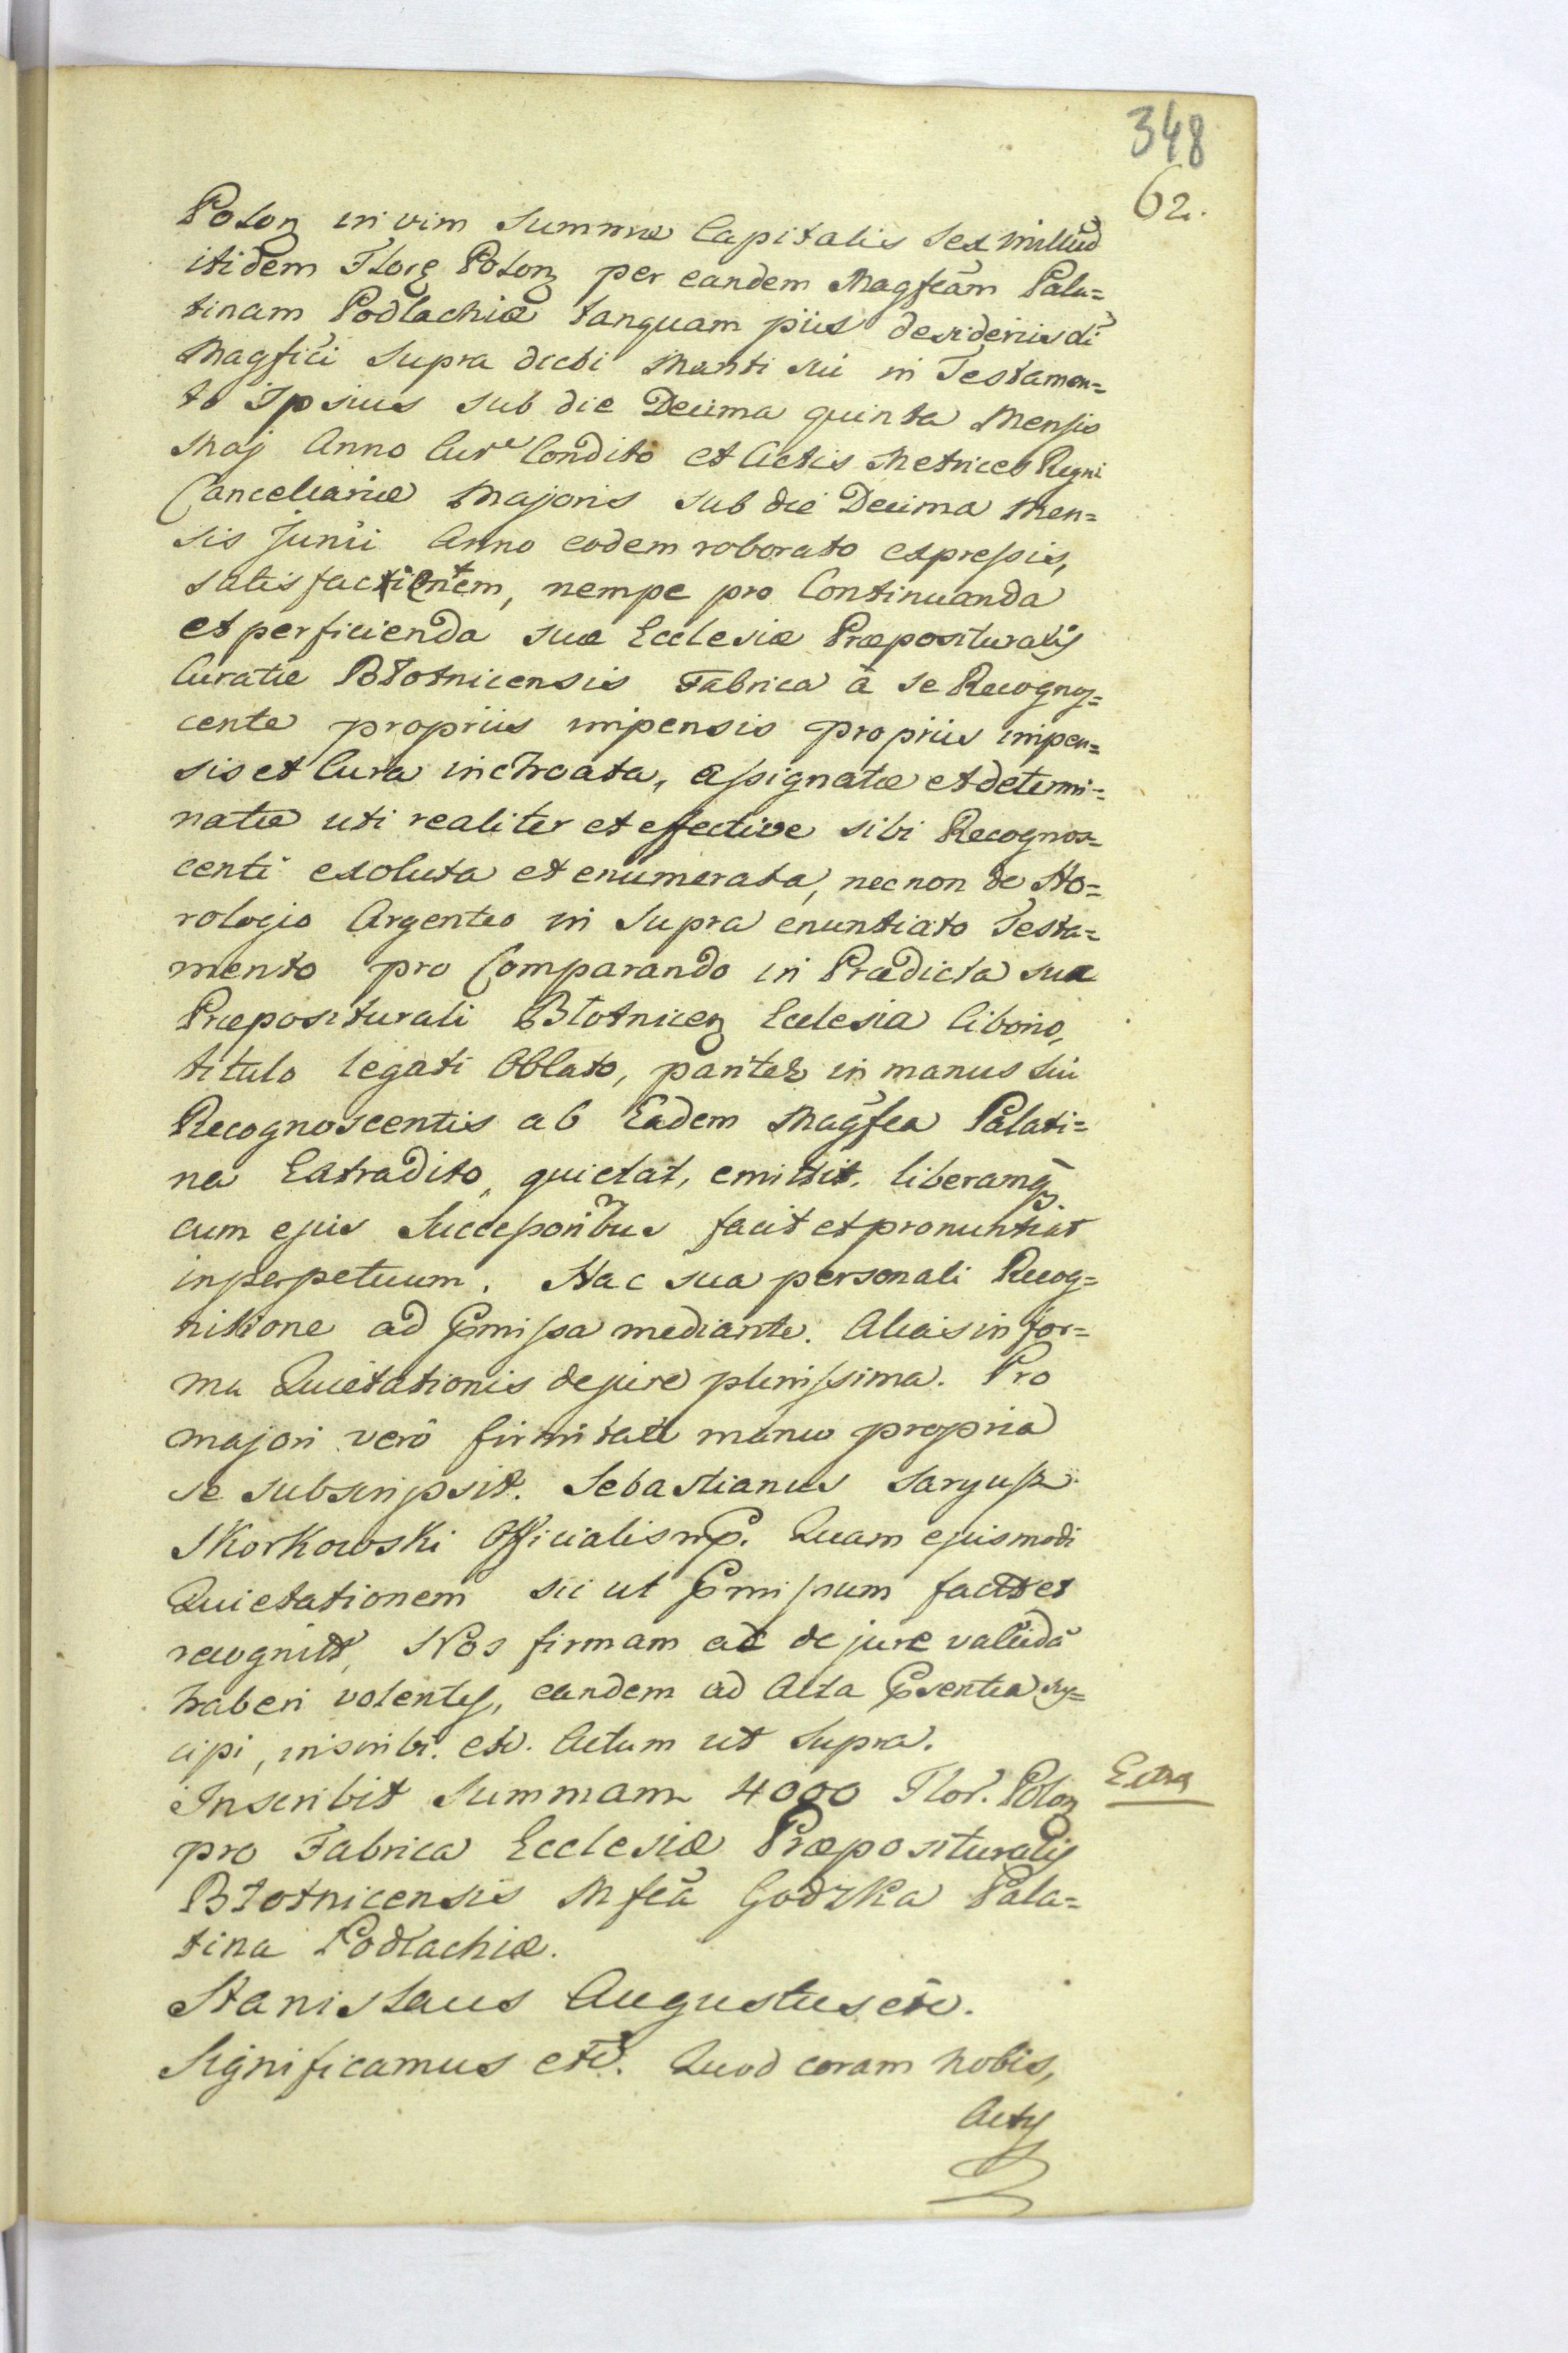 348
62.
Polonꝫ in vim Summæ Capitalis Sex milliũ
itidem Florꝫ Polonꝫ per eandem Magfcãm Pala=
tinam Podlachiæ tanquam piis desideriis di
Magfici Supra dicti Mariti sui in Testamen=
to Ipsius sub die Decima quinta Mensis
Maj Anno Curᵉ Condito et Actis Metrices Regni
Cancellariæ Majoris sub die Decima Men=
sis Junii Anno eodem roborato expressis,
satisfacientem, nempe pro Continuanda
et perficienda suæ Ecclesiæ Præposituralis
Curatæ Błotnicensis Fabrica â se Recognos=
cente propriis impensis propriis impen=
sis et Cura inchoata, assignatæ et determi=
natæ uti realiter et effective sibi Recognos=
centi exoluta et enumerata, nec non de Ho=
rologio Argenteo in Supra enuntiato Testa=
mento pro Comparando in Prædicta sua
Præpositurali Błotnicenꝫ Ecclesia Ciborio,
titulo legati Oblato, pariter in manus sui
Recognoscentis ab Eadem Magfca Palati=
na Extradito, quietat, emittit, liberamqꝫ
cum ejus Successoribus facit et pronuntiat
in perpetuum. Hac sua personali Recog=
nitione ad Pmissa mediante. Alias in for=
ma Quietationis de jure plenissima. Pro
majori verô firmitate manu propria
se subscripsit. Sebastianus Saryusz
Skorkowski Officialis mp. Quam ejusmodi
Quietationem sic ut Pmissum factet
recognit, Nos firmam ac de jure validã
haberi volentes, eandem ad Acta Psentia sus=
cipi, inscribi. etc. Actum ut Supra.
Inscribit Summam 4000 Flor. Polonꝫ
Extra
pro Fabrica Ecclesiæ Præposituralis
Błotnicensis Mfcã Godzka Pala=
tina Podlachiæ.
Stanislaus Augustus etc.
Significamus etc. Quod coram Nobis,
Actis